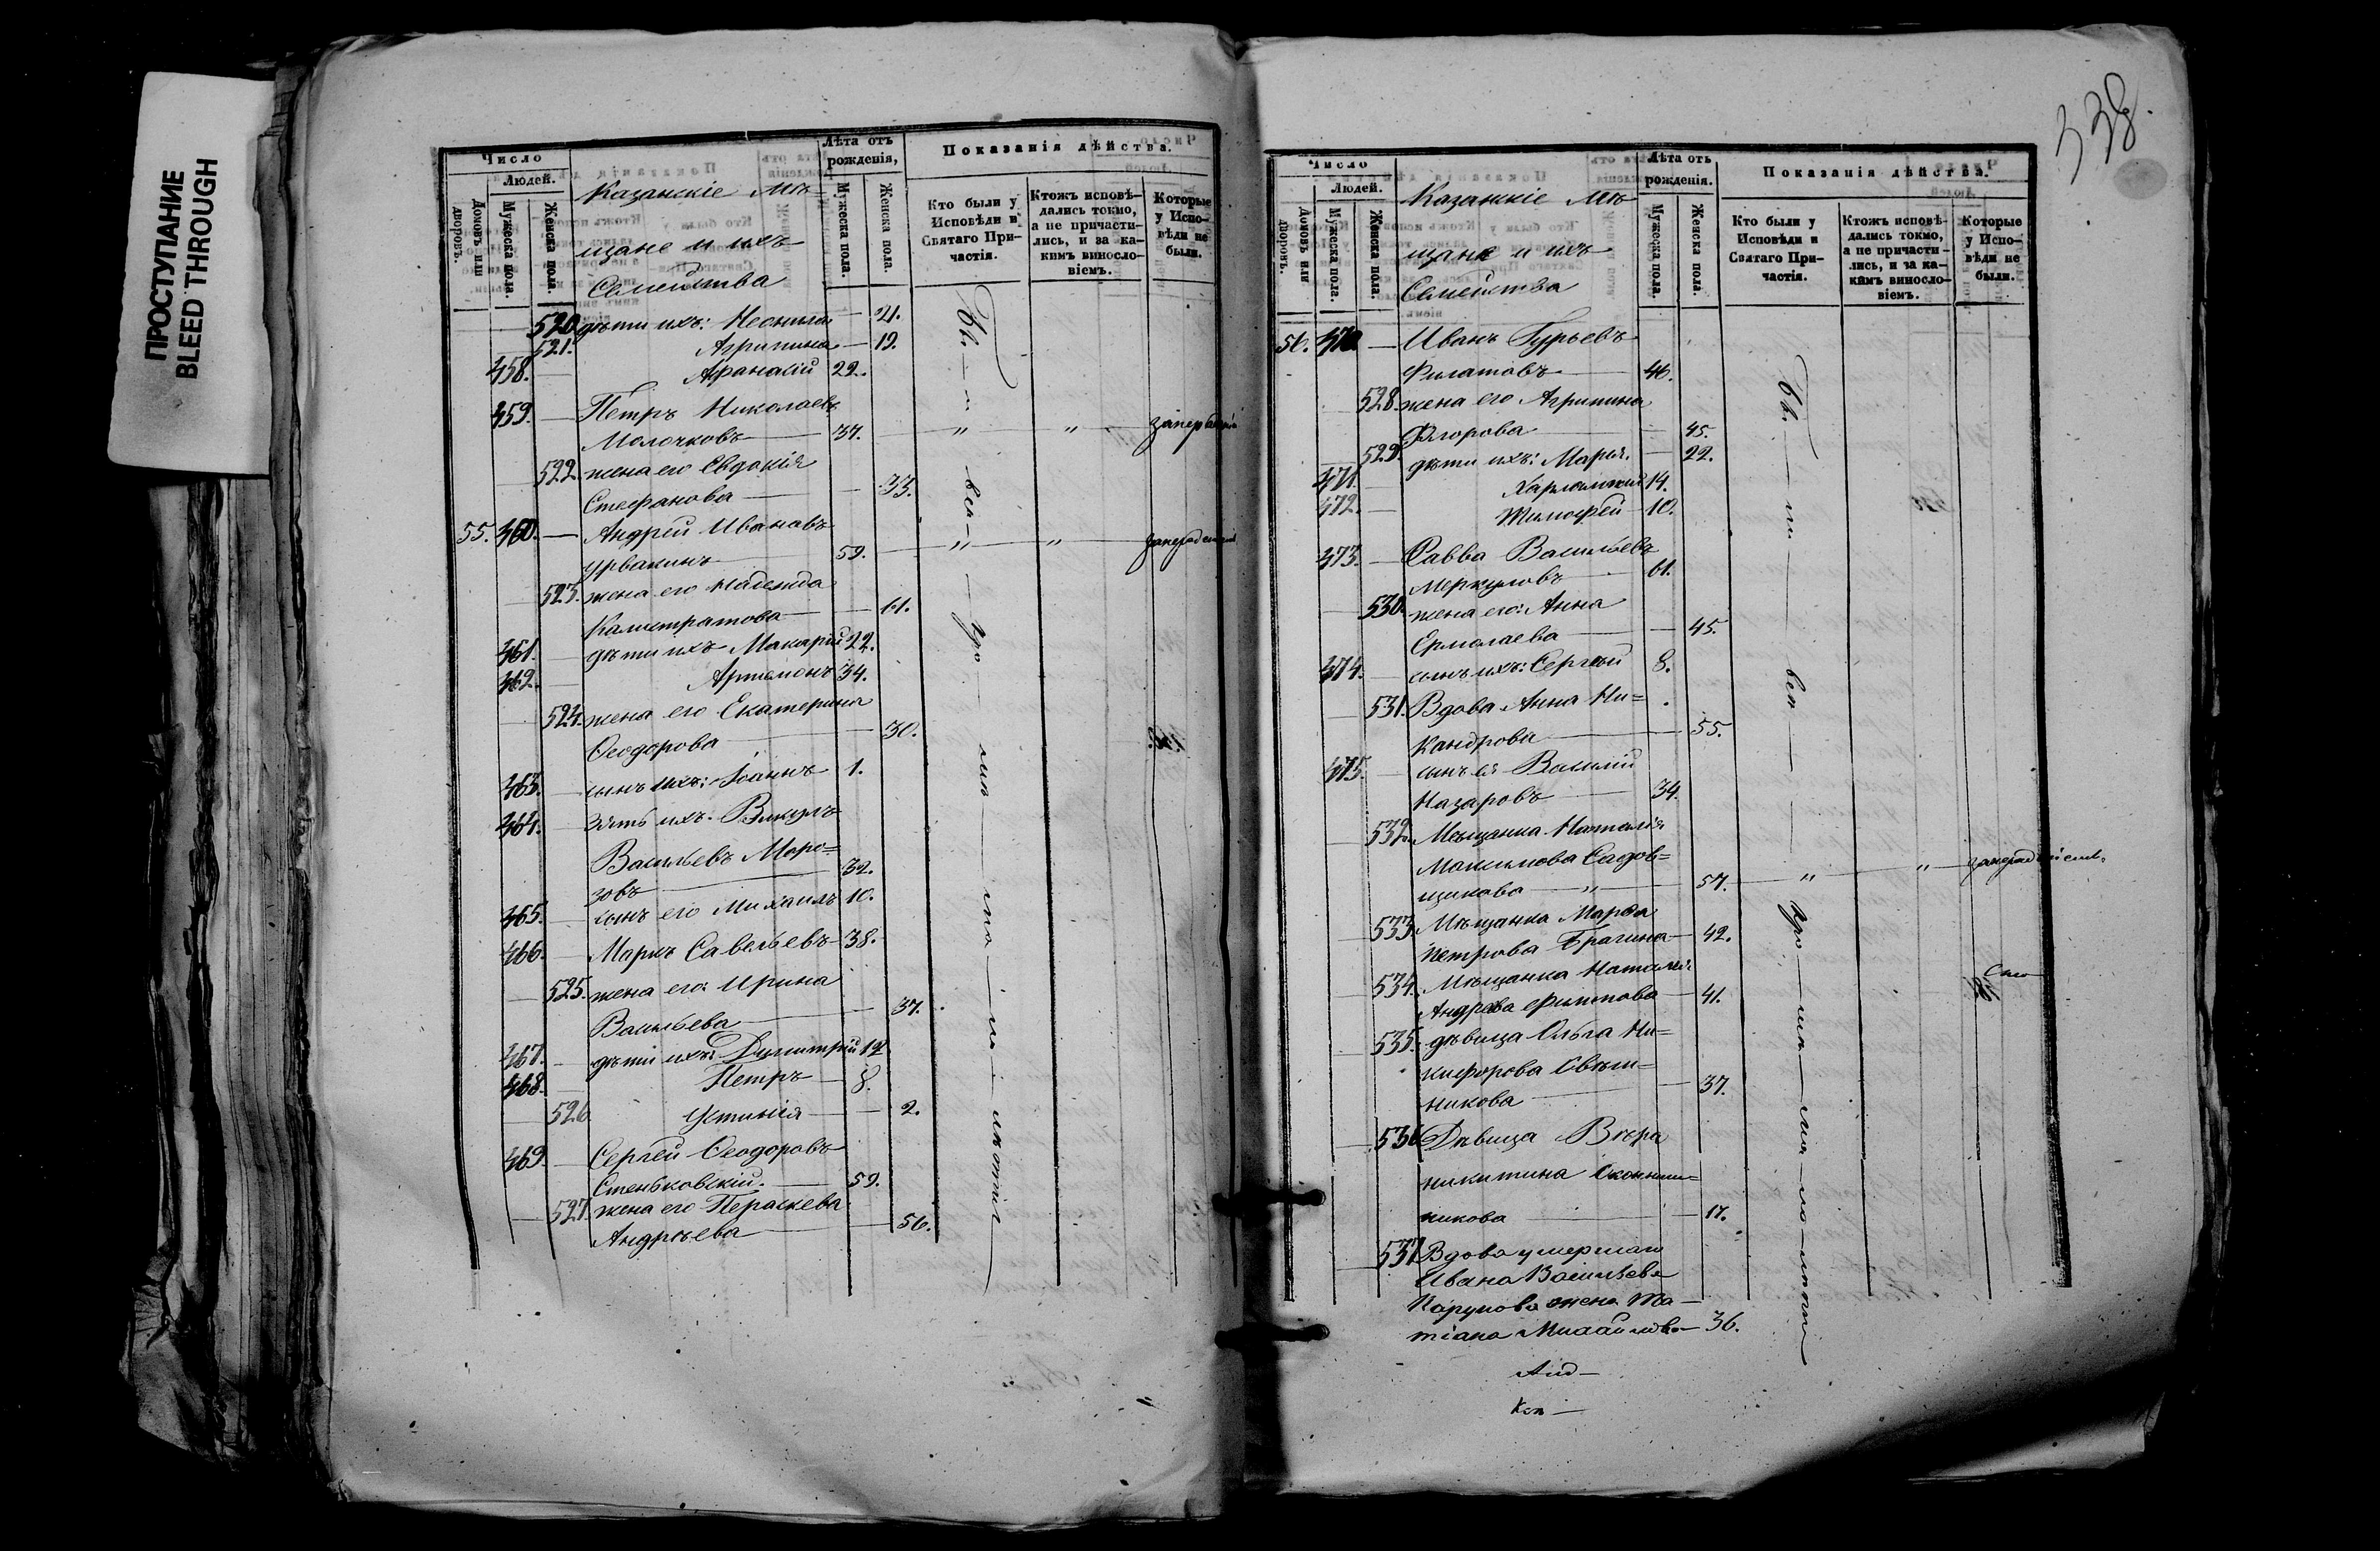 ПРОСТУПАНИЕ
BLEED THROUGH
Число
Людей.
Домовъ или дворовъ.
Мужеска пола.
Женска пола.
Казанскіе Мѣ-
щане и ихъ
Семейства
Лѣта отъ рожденія,
Мужеска пола.
Женска пола.
Показанія дѣйства.
Кто были у Исповѣди и Святаго Причастія.
Ктожъ исповѣ-
дались токмо,
а не причасти-
лись, и за ка-
кимъ винословіемъ.
Которые у Испо-
вѣди не были.
520 дѣти ихъ: Неонила — 21.
521. Агрипина — 19.
458. Афанасій 22.
459. — Петръ Николаевъ
Молочковъ — 37. — " — " —
522. жена его Евдокія
Стефанова — 33.
55. 460. — Андрей Ивановъ
Урвакинъ — 59. — " — " —
523. жена его Надежда
Калистратова — 61.
461. дѣти ихъ Макарій 22.
462. Артамонъ 34.
524. жена его Екатерина
Ѳеодорова — 30.
463. сынъ ихъ: Іоаннъ 1.
464. Зять ихъ. Викулъ
Васильевъ Моро=
зовъ — 32.
465. сынъ его Михаилъ 10.
466. — Маркъ Савельевъ — 38.
525. жена его: Ирина
Васильева — 37.
467. дѣти ихъ: Димитрій 12
468. Петръ — 8.
526 Устинія — 2.
469. — Сергей Ѳеодоровъ
Стеньковскій. — 59.
527. жена его Параскева
Андрѣева — 56.
338.
Число
Людей.
Домовъ или дворовъ.
Мужеска пола.
Женска пола.
Казанскіе Мѣ-
щане и ихъ
Семейства
Лѣта отъ рожденія.
Мужеска пола.
Женска пола.
Показанія дѣйства.
Кто были у Исповѣди и Святаго Причастія.
Ктожъ исповѣ-
дались токмо,
а не причасти-
лись, и за ка-
кимъ винословіемъ.
Которые у Испо-
вѣди не были.
56. 470. — Иванъ Гурьевъ
Филатовъ — 46.
528. жена его Агрипина
— 45.
529. дѣти ихъ: Марья. — 22.
471. Харлампій 14.
472. — Тимофей — 10.
473. — Савва Васильевъ
Меркуловъ — 61.
530. жена его: Анна
Ермолаева — 45.
474. — сынъ ихъ: Сергей 8.
531. Вдова Анна Ни=
кандрова — 55.
475. — сынъ ея Василій
Назаровъ — 34.
532. Мещанка Наталія
Максимова Садов=
щикова — " — 57. — " — " —
533. Мѣщанка Марфа
Петрова Брагина — 42.
534. Мѣщанка Наталья
Андреева — 41.
535. дѣвица Ольга Ни=
кифорова Свѣш=
никова — 37.
536 Дѣвица Вѣра
никитина Оконниш=
никова — 17.
537 Вдова умершаго
Ивана Васильева
жена Та—
тіана Михайлова — 36.